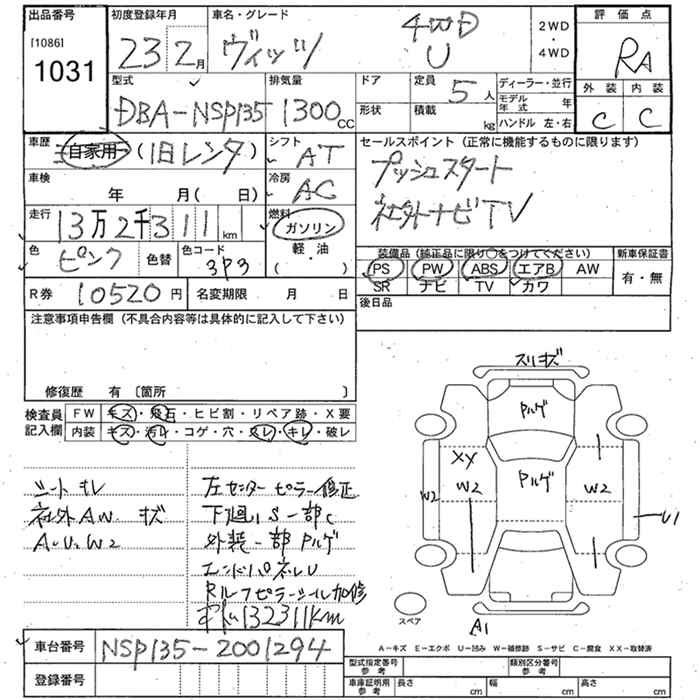 出品番号
[1086]
1031
初度登録年月
23 2月
車名・グレード
ヴィッツ
4WD
U
2WD
・
4WD
評価点
RA
外装 内装
C C
型式
DBA-NSP135
排気量
1300 CC
ドア
形状
定員
5人
積載
kg
ディーラー・並行
モデル年式 年
ハンドル 左・右
車歴
自家用 (旧レンタ)
シフト
AT
セールスポイント (正常に機能するものに限ります)
プッシュスタート
社外ナビTV
車検
年 月( 日)
冷房
AC
走行
13万2千311km
燃料
ガソリン
軽・油
( )
色
ピンク
色替
色コード
3P3
装備品 (純正品に限り○をつけてください)
新車保証書
PS PW ABS エアB AW
SR ナビ TV カワ
有・無
R券 10520円
名変期限 月 日
後日品
注意事項申告欄 (不具合内容等は具体的に記入して下さい)
修復歴 有 〔箇所 〕
検査員
記入欄
FW キズ・飛石・ヒビ割・リペア跡・X要
内装 キズ・汚レ・コゲ・穴・スレ・キレ・破レ
シートキレ
社外AW.キズ
A・U・W2
左センターピラー修正
下廻りS一部C
外装一部Pルゲ
エンドパネルU
Rルーフピラーシール加修
132311km
車台番号 NSP135-2001294
登録番号
スリキズ
Pルゲ
Pルゲ
XX
W2
W2
W2
U1
A1
スペア
A-キズ E-エクボ U-凹み W-補修跡 S-サビ C-腐食 XX-取替済
型式指定番号
参考
類別区分番号
参考
車庫証明用
参考
長さ cm 幅 cm 高さ cm